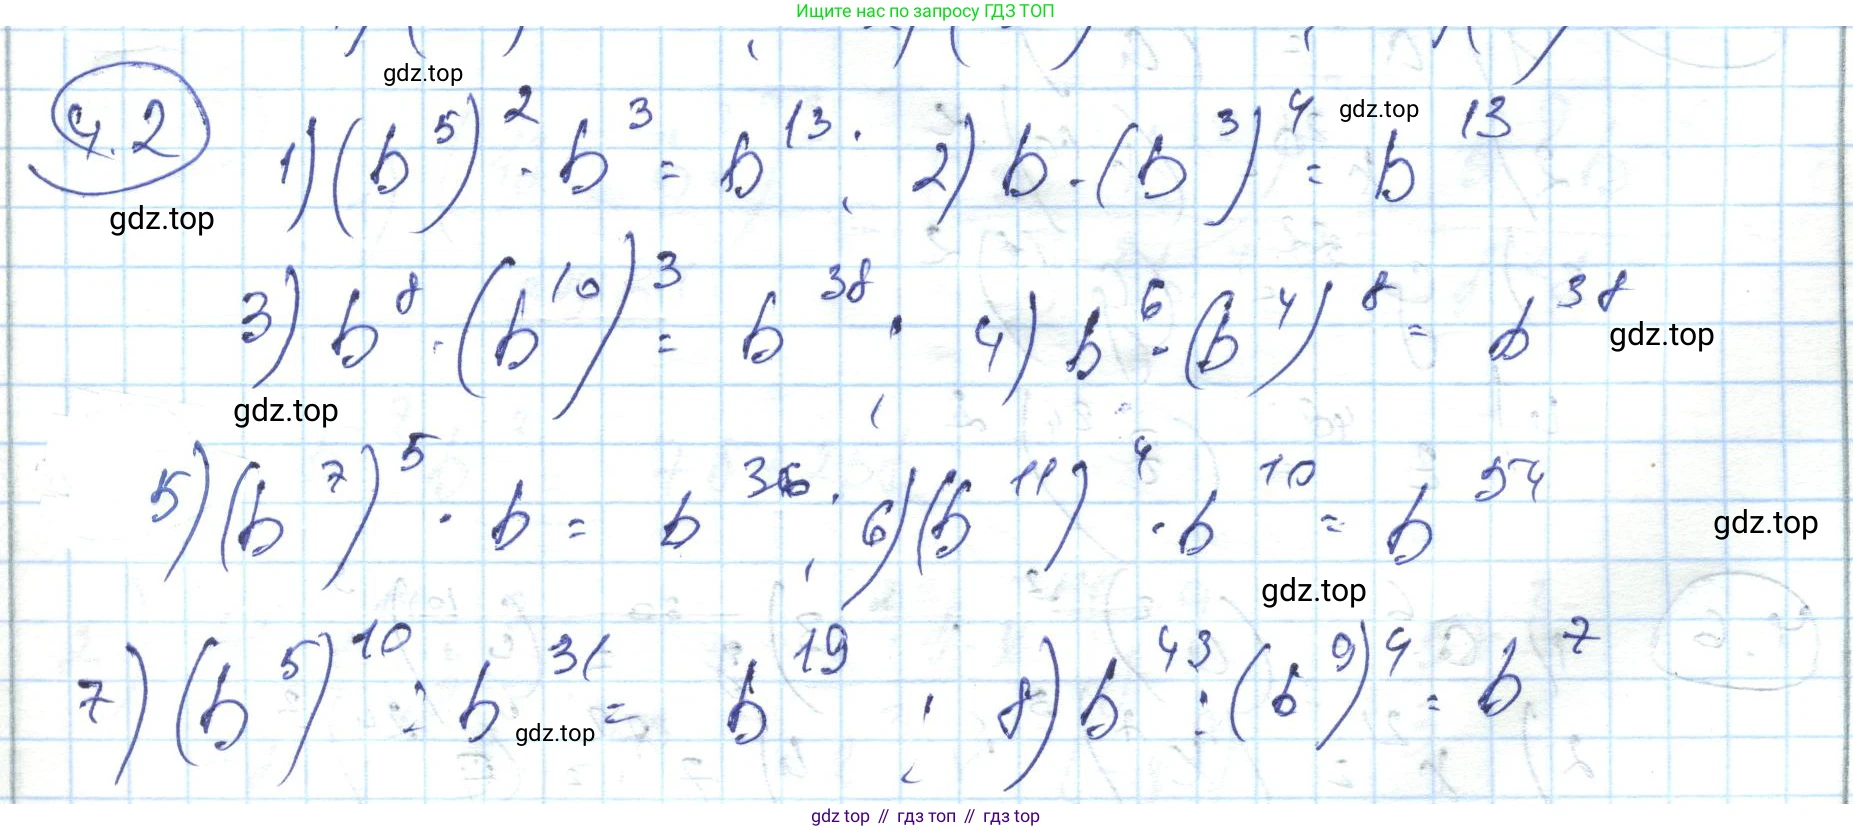 Ищите нас по запросу ГДЗ ТОП
gdz.top
4.2 1) (b⁵)² · b³ = b¹³; 2) b · (b³)⁴ = b¹³
gdz.top
gdz.top
3) b⁸ · (b¹⁰)³ = b³⁸; 4) b⁶ · (b⁴)⁸ = b³⁸
gdz.top
gdz.top
5) (b⁷)⁵ · b = b³⁶; 6) (b¹¹)⁴ · b¹⁰ = b⁵⁴
gdz.top
gdz.top
7) (b⁵)¹⁰ : b³¹ = b¹⁹; 8) b⁴³ : (b⁹)⁴ = b⁷
gdz.top
gdz top // гдз топ // gdz top